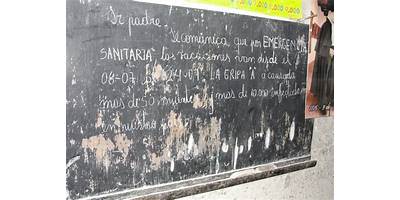 Sr padre
Se comunica que por EMERGENCIA
SANITARIA las vacaciones van desde el
08-07 al 24-07. LA GRIPA "A" a causado
mas de 50 muertes y mas de 10.000 infectados
en nuestro país